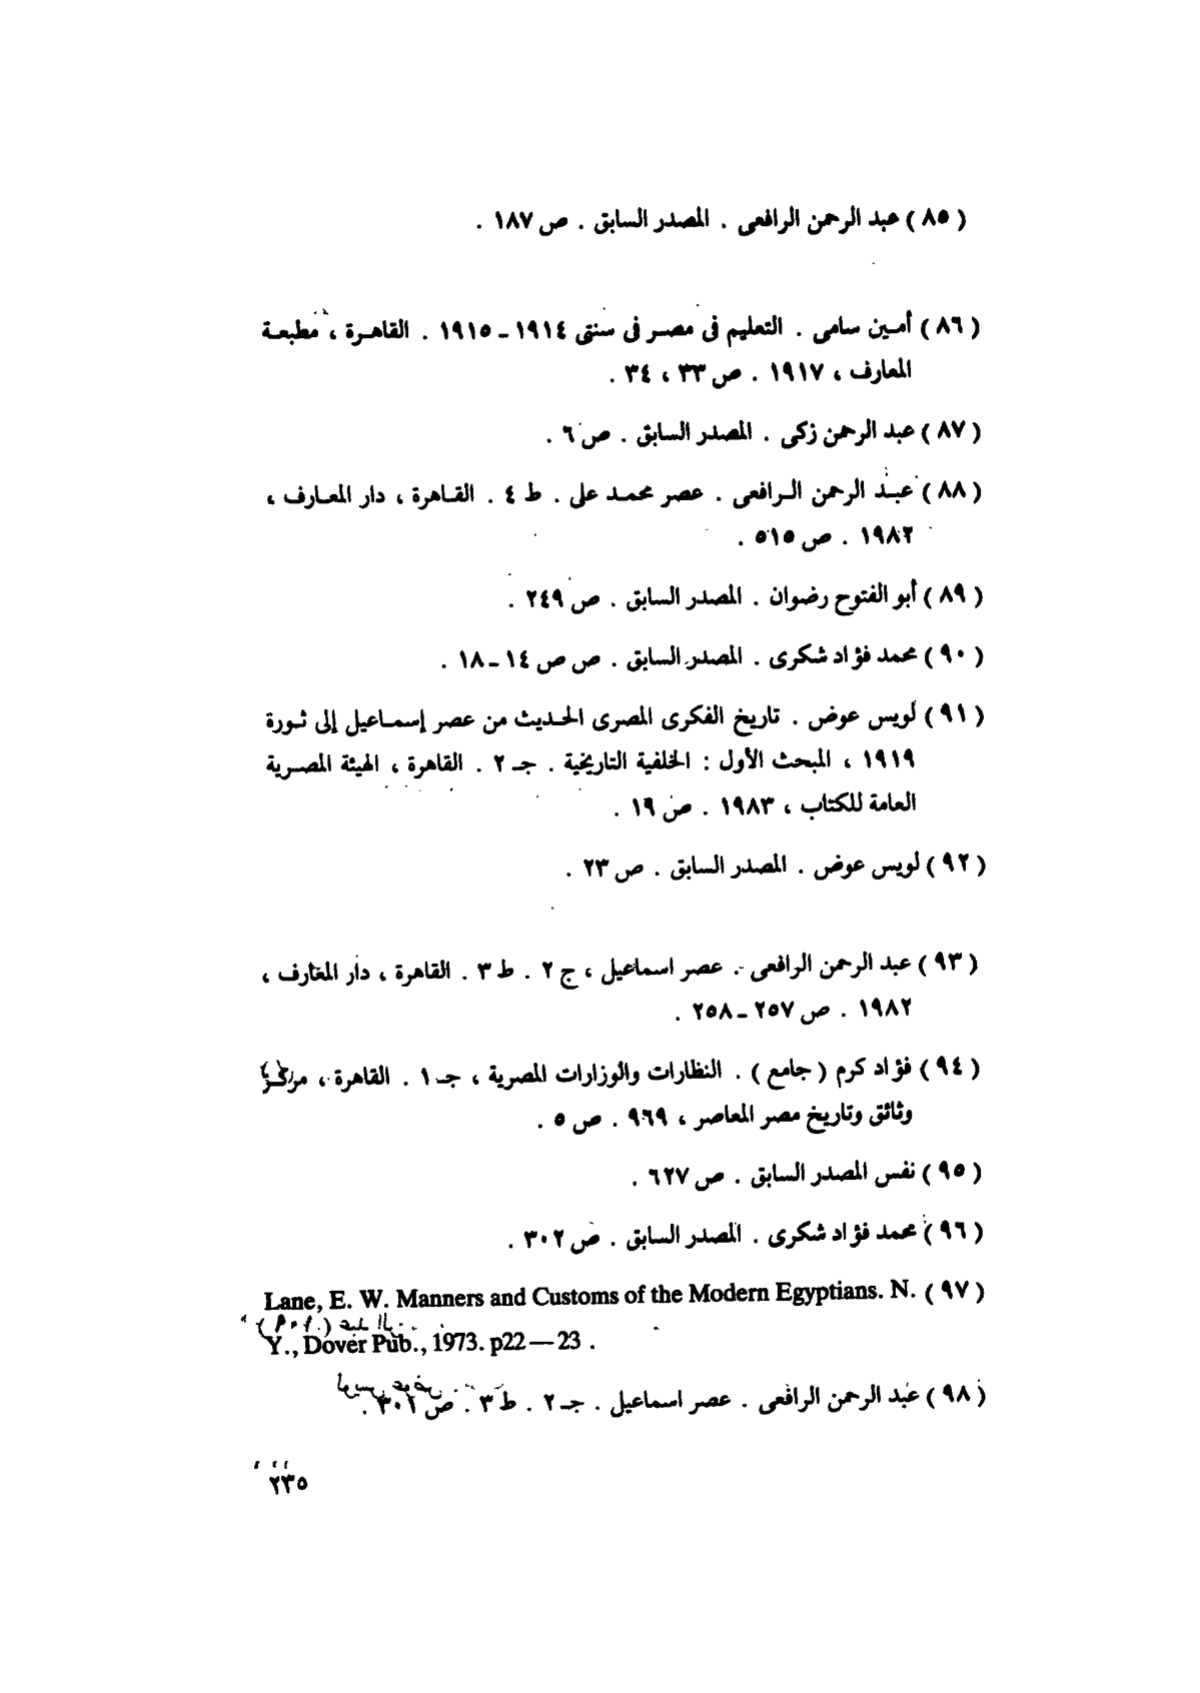 ( ٨٥ ) عبد الرحمن الرافعى . المصدر السابق . ص ١٨٧ .
( ٨٦ ) أمـين سامى . التعليم فى مصـر فى سنتى ١٩١٤ ـ ١٩١٥ . القاهـرة ، مطبعـة
المعارف ، ١٩١٧ . ص ٣٣ ، ٣٤ .
( ٨٧ ) عبد الرحمن زكى . المصدر السابق . ص ٦ .
( ٨٨ ) عبـد الرحمن الـرافعى . عصر محمـد على . ط ٤ . القـاهرة ، دار المعـارف ،
١٩٨٢ . ص ٥١٥ .
( ٨٩ ) أبو الفتوح رضوان . المصدر السابق . ص ٢٤٩ .
( ٩٠ ) محمد فؤاد شكرى . المصدر السابق . ص ص ١٤ ـ ١٨ .
( ٩١ ) لويس عوض . تاريخ الفكرى المصرى الحـديث من عصر إسمـاعيل إلى ثـورة
١٩١٩ ، المبحث الأول : الخلفية التاريخية . جـ ٢ . القاهرة ، الهيئة المصـرية
العامة للكتاب ، ١٩٨٣ . ص ١٩ .
( ٩٢ ) لويس عوض . المصدر السابق . ص ٢٣ .
( ٩٣ ) عبد الرحمن الرافعى . عصر اسماعيل ، ج ٢ . ط ٣ . القاهرة ، دار المعارف ،
١٩٨٢ . ص ٢٥٧ ـ ٢٥٨ .
( ٩٤ ) فؤاد كرم ( جامع ) . النظارات والوزارات المصرية ، جـ ١ . القاهرة ، مركـز
وثائق وتاريخ مصر المعاصر ، ٩٦٩ . ص ٥ .
( ٩٥ ) نفس المصدر السابق . ص ٦٢٧ .
( ٩٦ ) محمد فؤاد شكرى . المصدر السابق . ص ٣٠٢ .
Lane, E. W. Manners and Customs of the Modern Egyptians. N. ( ٩٧ )
Y., Dover Pub., 1973. p22 — 23 .
( ٩٨ ) عبد الرحمن الرافعى . عصر اسماعيل . جـ ٢ . ط ٣ . ص ٣٠٢ .
٢٣٥